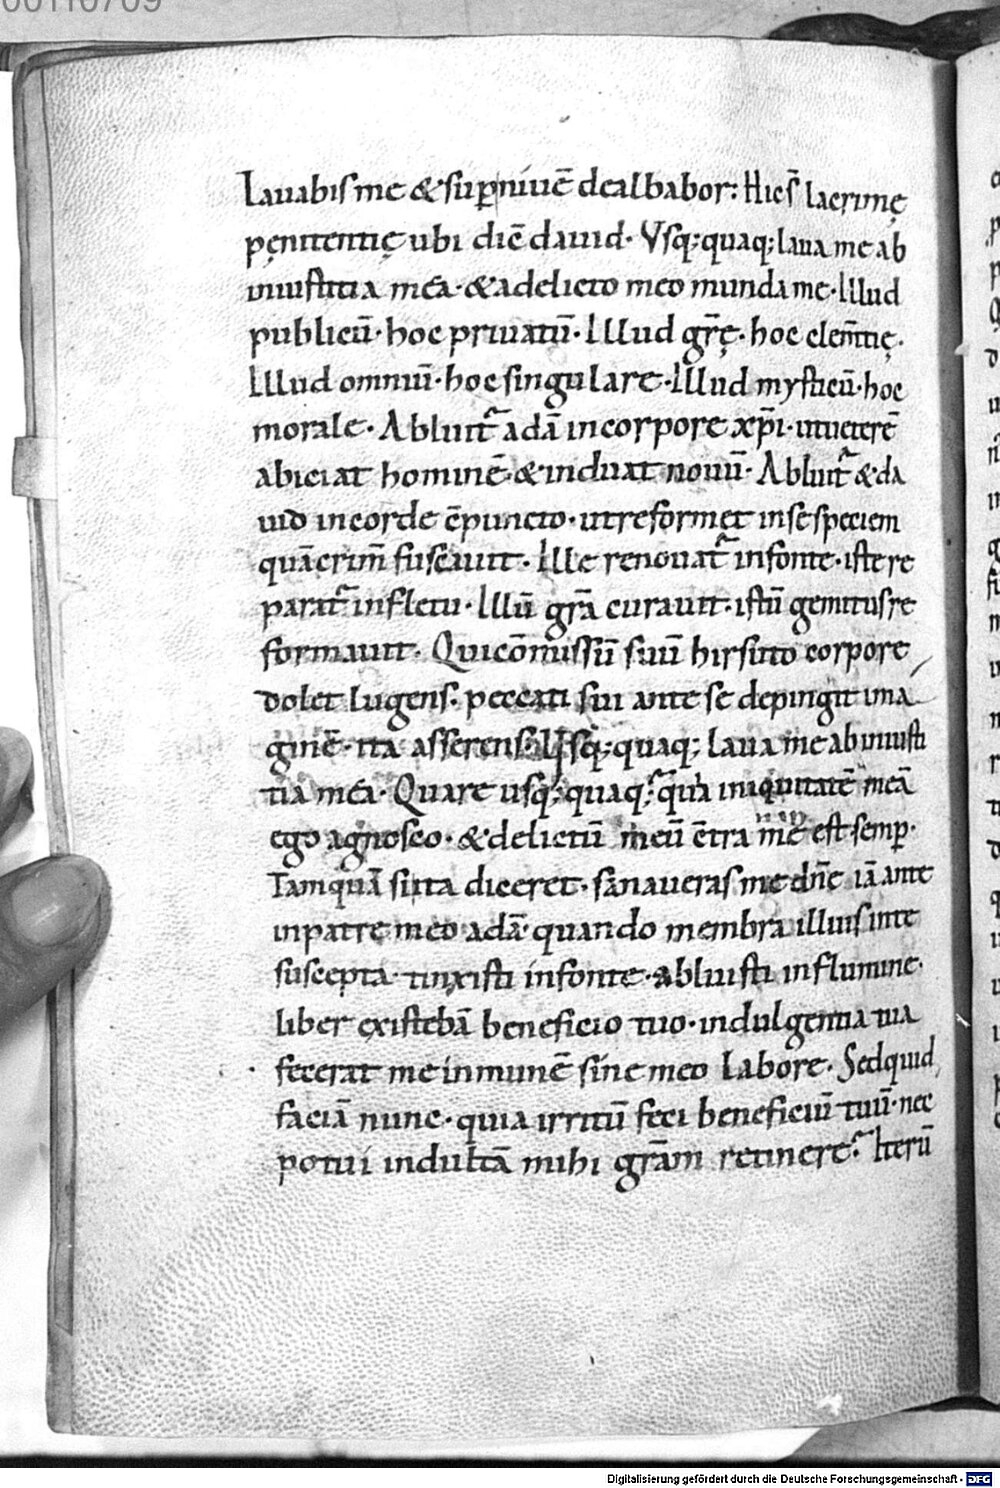 00110709
Lauabis me & sup niuē dealbabor: Hic s̄ lacrimę
pęnitentię ubi diē dauid. Vsq; quaq; laua me ab
iniustitia mea. & a delicto meo munda me. Illud
publicū. hoc priuatū. Illud grę̄. hoc clem̄tię.
Illud omniū. hoc singulare. Illud mysticū. hoc
morale. Abluit adā in corpore xp̄i. ut ueterē
abiciat hominē & induat nouū. Abluit & da
uid in corde cōpuncto. ut reformet in se speciem
quā crim̄ fuscauit. Ille renouat in fonte. iste re
parat in fletu. Illū grā curauit. istū gemitus re
formauit. Qui cōmissū suū hirsuto corpore
dolet lugens. peccati sui ante se depingit ima
ginē. ita asserens. Vsq; quaq; laua me ab iniusti
tia mea. Quare usq; quaq; quia iniquitatē meā
ego agnosco. & delictū meū c̄tra me est semp.
Tamquā si ita diceret. sanaueras me dn̄e iā ante
in patre meo adā. quando membra illius in te
suscepta. tinxisti in fonte. abluisti in flumine.
liber existebā beneficio tuo. indulgentia tua
fecerat me inmunē sine meo labore. Sed quid
faciā nunc. quia irritū feci beneficiū tuū. nec
potui indultā mihi grām retinere. Iterū
Digitalisierung gefördert durch die Deutsche Forschungsgemeinschaft - DFG